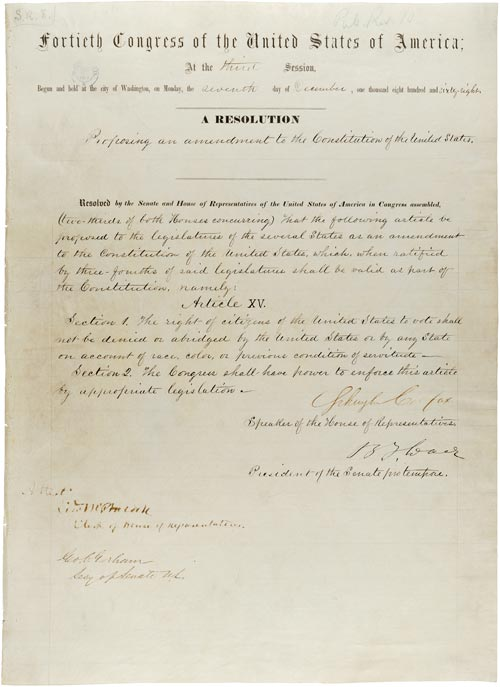 S.R. 8.
Pub. Res. 10
Fortieth Congress of the United States of America;
At the third Session,
Begun and held at the city of Washington, on Monday, the seventh day of December, one thousand eight hundred and sixty-eight.
A RESOLUTION
Proposing an amendment to the Constitution of the United States.
Resolved by the Senate and House of Representatives of the United States of America in Congress assembled,
(two-thirds of both Houses concurring) That the following article be
proposed to the legislatures of the several States as an amendment
to the Constitution of the United States, which, when ratified
by three-fourths of said legislatures shall be valid as part of
the Constitution, namely:
Article XV.
Section 1. The right of citizens of the United States to vote shall
not be denied or abridged by the United States or by any State
on account of race, color, or previous condition of servitude—
Section 2. The Congress shall have power to enforce this article
by appropriate legislation—
Schuyler Colfax
Speaker of the House of Representatives.
B. F. Wade
President of the Senate pro tempore.
Attest
Clerk of House of Representatives.
Geo. C. Gorham
Secy of Senate U.S.